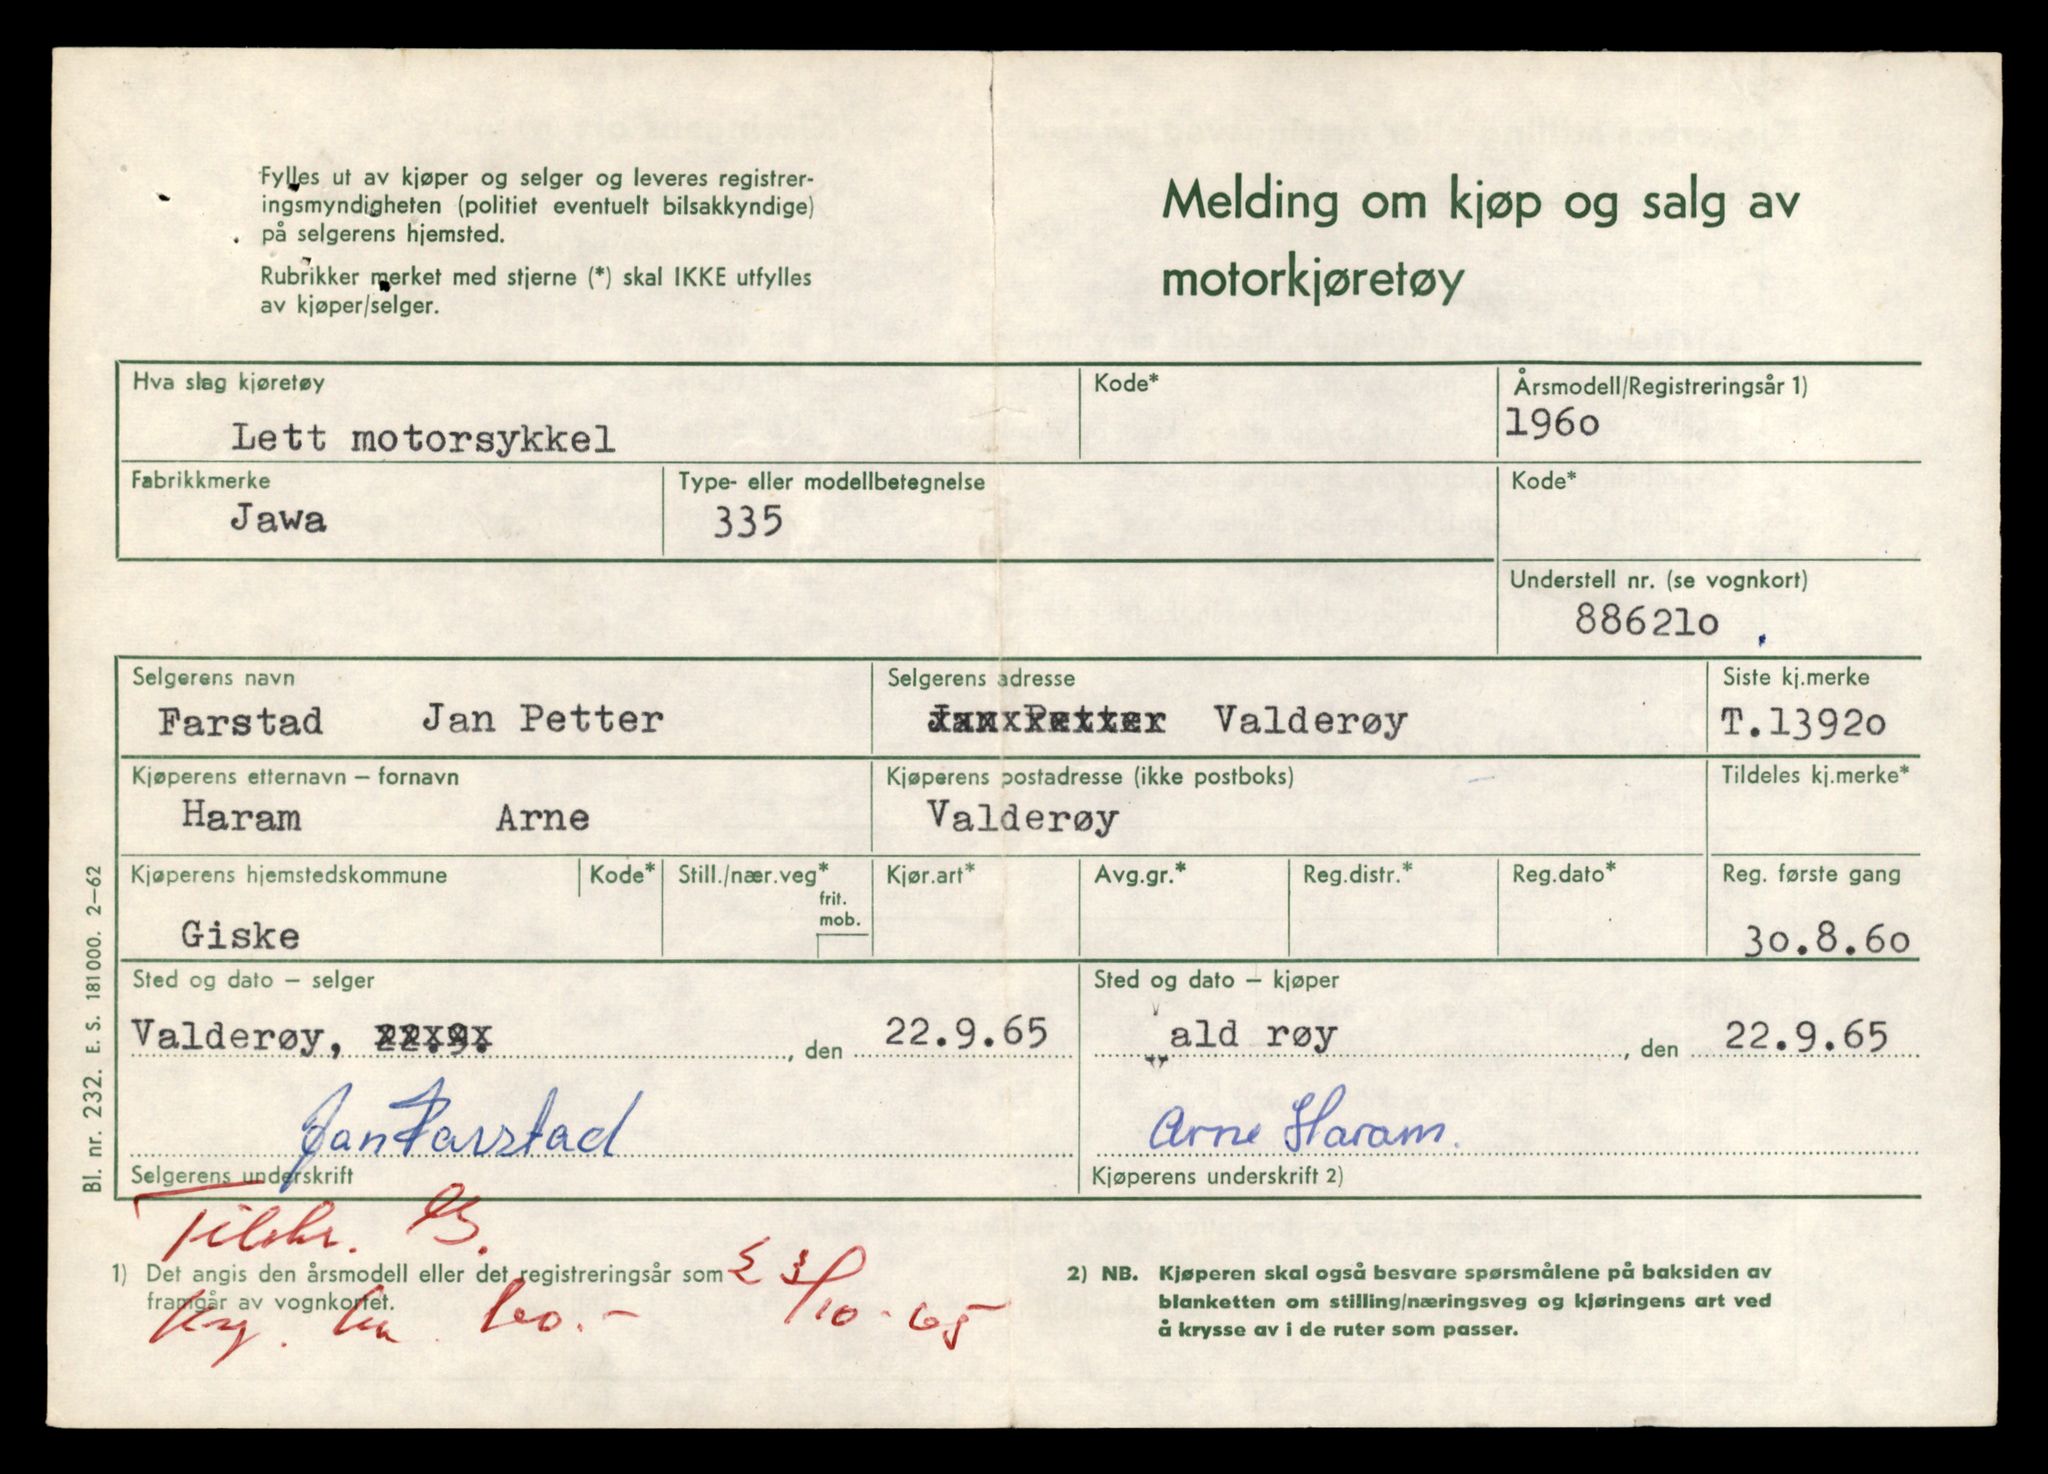 Fylles ut av kjøper og selger og leveres registrer-
ingsmyndigheten (politiet eventuelt bilsakkyndige)
på selgerens hjemsted.
Rubrikker merket med stjerne (*) skal IKKE utfylles
av kjøper/selger.
Melding om kjøp og salg av
motorkjøretøy
Hva slag kjøretøy
Lett motorsykkel
Kode*
Årsmodell/Registreringsår 1)
1960
Fabrikkmerke
Jawa
Type- eller modellbetegnelse
335
Kode*
Understell nr. (se vognkort)
886210
Selgerens navn
Farstad Jan Petter
Selgerens adresse
Jan Petter Valderøy
Siste kj.merke
T.13920
Kjøperens etternavn – fornavn
Haram Arne
Kjøperens postadresse (ikke postboks)
Valderøy
Tildeles kj.merke*
Kjøperens hjemstedskommune
Giske
Kode*
Still./nær.veg*
frit.
mob.
Kjør.art*
Avg.gr.*
Reg.distr.*
Reg.dato*
Reg. første gang
30.8.60
Sted og dato – selger
Valderøy, 22.9. , den 22.9.65
Sted og dato – kjøper
ald røy , den 22.9.65
Jan Farstad
Selgerens underskrift
Arne Haram.
Kjøperens underskrift 2)
Bl. nr. 232. E. S. 181000. 2–62
1) Det angis den årsmodell eller det registreringsår som
framgår av vognkortet.
/10-65
2) NB. Kjøperen skal også besvare spørsmålene på baksiden av
blanketten om stilling/næringsveg og kjøringens art ved
å krysse av i de ruter som passer.